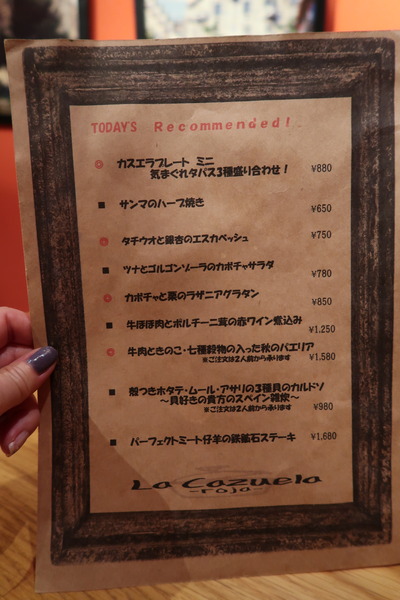 TODAY'S Recommended!
◎ カスエラプレート ミニ
気まぐれタパス3種盛り合わせ! ¥880
■ サンマのハーブ焼き ¥650
◎ タチウオと銀杏のエスカベッシュ ¥750
■ ツナとゴルゴンゾーラのカボチャサラダ ¥780
◎ カボチャと栗のラザニアグラタン ¥850
■ 牛ほほ肉とポルチーニ茸の赤ワイン煮込み ¥1.250
◎ 牛肉ときのこ・七種穀物の入った秋のパエリア ¥1.580
※ご注文は2人前から承ります
■ 殻つきホタテ・ムール・アサリの3種貝のカルドソ
～貝好きの貴方のスペイン雑炊～
※ご注文は2人前から承ります ¥980
■ パーフェクトミート仔羊の鉄鉱石ステーキ ¥1.680
La Cazuela
-roja-